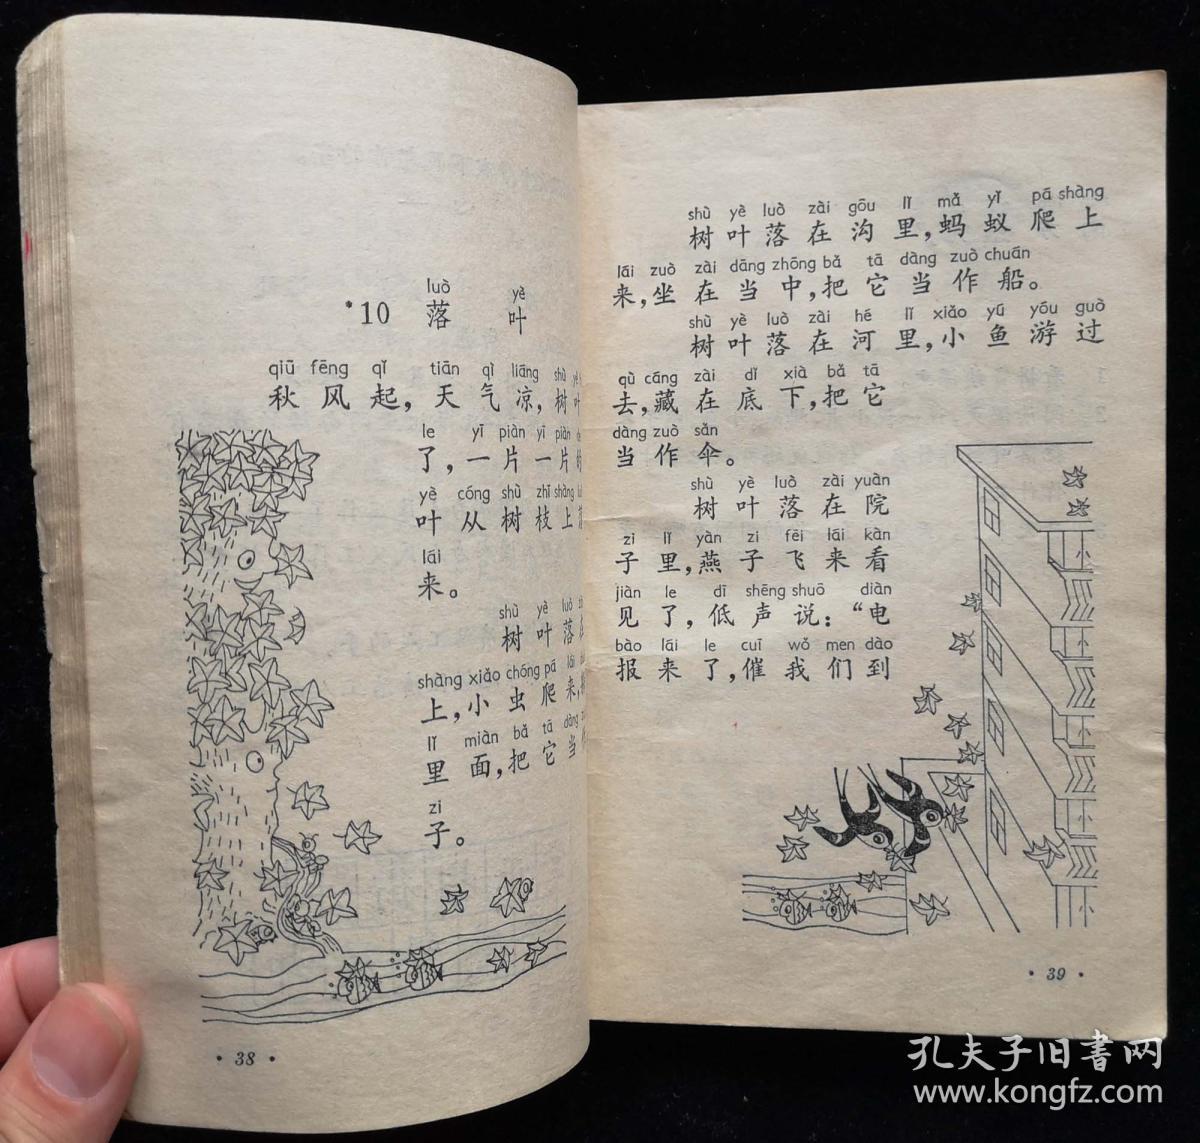 luò yè
*10 落 叶
qiū fēng qǐ tiān qì liáng shù yè
秋风起，天气凉，树叶
le yī piàn yī piàn
了，一片一片的
yè cóng shù zhī shàng luò
叶从树枝上落
lái
来。
shù yè luò zài
树叶落在
shàng xiǎo chóng pá lái
上，小虫爬来，
lǐ miàn bǎ tā dàng
里面，把它当作
zi
子。
·38·
shù yè luò zài gōu lǐ mǎ yǐ pá shàng
树叶落在沟里，蚂蚁爬上
lái zuò zài dāng zhōng bǎ tā dàng zuò chuán
来，坐在当中，把它当作船。
shù yè luò zài hé lǐ xiǎo yú yóu guò
树叶落在河里，小鱼游过
qù cáng zài dǐ xià bǎ tā
去，藏在底下，把它
dàng zuò sǎn
当作伞。
shù yè luò zài yuàn
树叶落在院
zi lǐ yàn zi fēi lái kàn
子里，燕子飞来看
jiàn le dī shēng shuō diàn
见了，低声说：“电
bào lái le cuī wǒ men dào
报来了，催我们到
·39·
孔夫子旧书网
www.kongfz.com